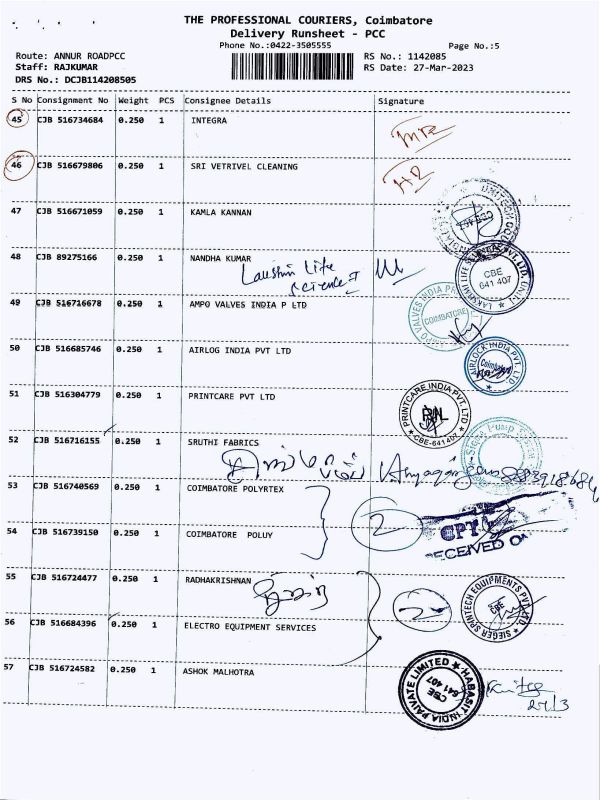 THE PROFESSIONAL COURIERS, Coimbatore
Delivery Runsheet - PCC
Phone No.:0422-3505555
Page No.:5
Route: ANNUR ROADPCC
RS No.: 1142085
Staff: RAJKUMAR
RS Date: 27-Mar-2023
DRS No.: DCJB114208505
S No Consignment No Weight PCS Consignee Details Signature
45 CJB 516734684 0.250 1 INTEGRA
46 CJB 516679806 0.250 1 SRI VETRIVEL CLEANING
47 CJB 516671059 0.250 1 KAMLA KANNAN
48 CJB 89275166 0.250 1 NANDHA KUMAR
Life
CBE
641 407
49 CJB 516716678 0.250 1 AMPO VALVES INDIA P LTD
COIMBATORE
50 CJB 516685746 0.250 1 AIRLOG INDIA PVT LTD
AIRLOCK INDIA PVT. LTD.
51 CJB 516304779 0.250 1 PRINTCARE PVT LTD
PRINTCARE INDIA PVT. LTD
CBE-641402
52 CJB 516716155 0.250 1 SRUTHI FABRICS
53 CJB 516740569 0.250 1 COIMBATORE POLYRTEX
2
54 CJB 516739150 0.250 1 COIMBATORE POLUY
RECEIVED ON
55 CJB 516724477 0.250 1 RADHAKRISHNAN
2
SIEGER SPINTECH EQUIPMENTS PVT. LTD.
CBE
56 CJB 516684396 0.250 1 ELECTRO EQUIPMENT SERVICES
57 CJB 516724582 0.250 1 ASHOK MALHOTRA
HABASIT INDIA PAIVATE LIMITED
CBE
641 407
27/3